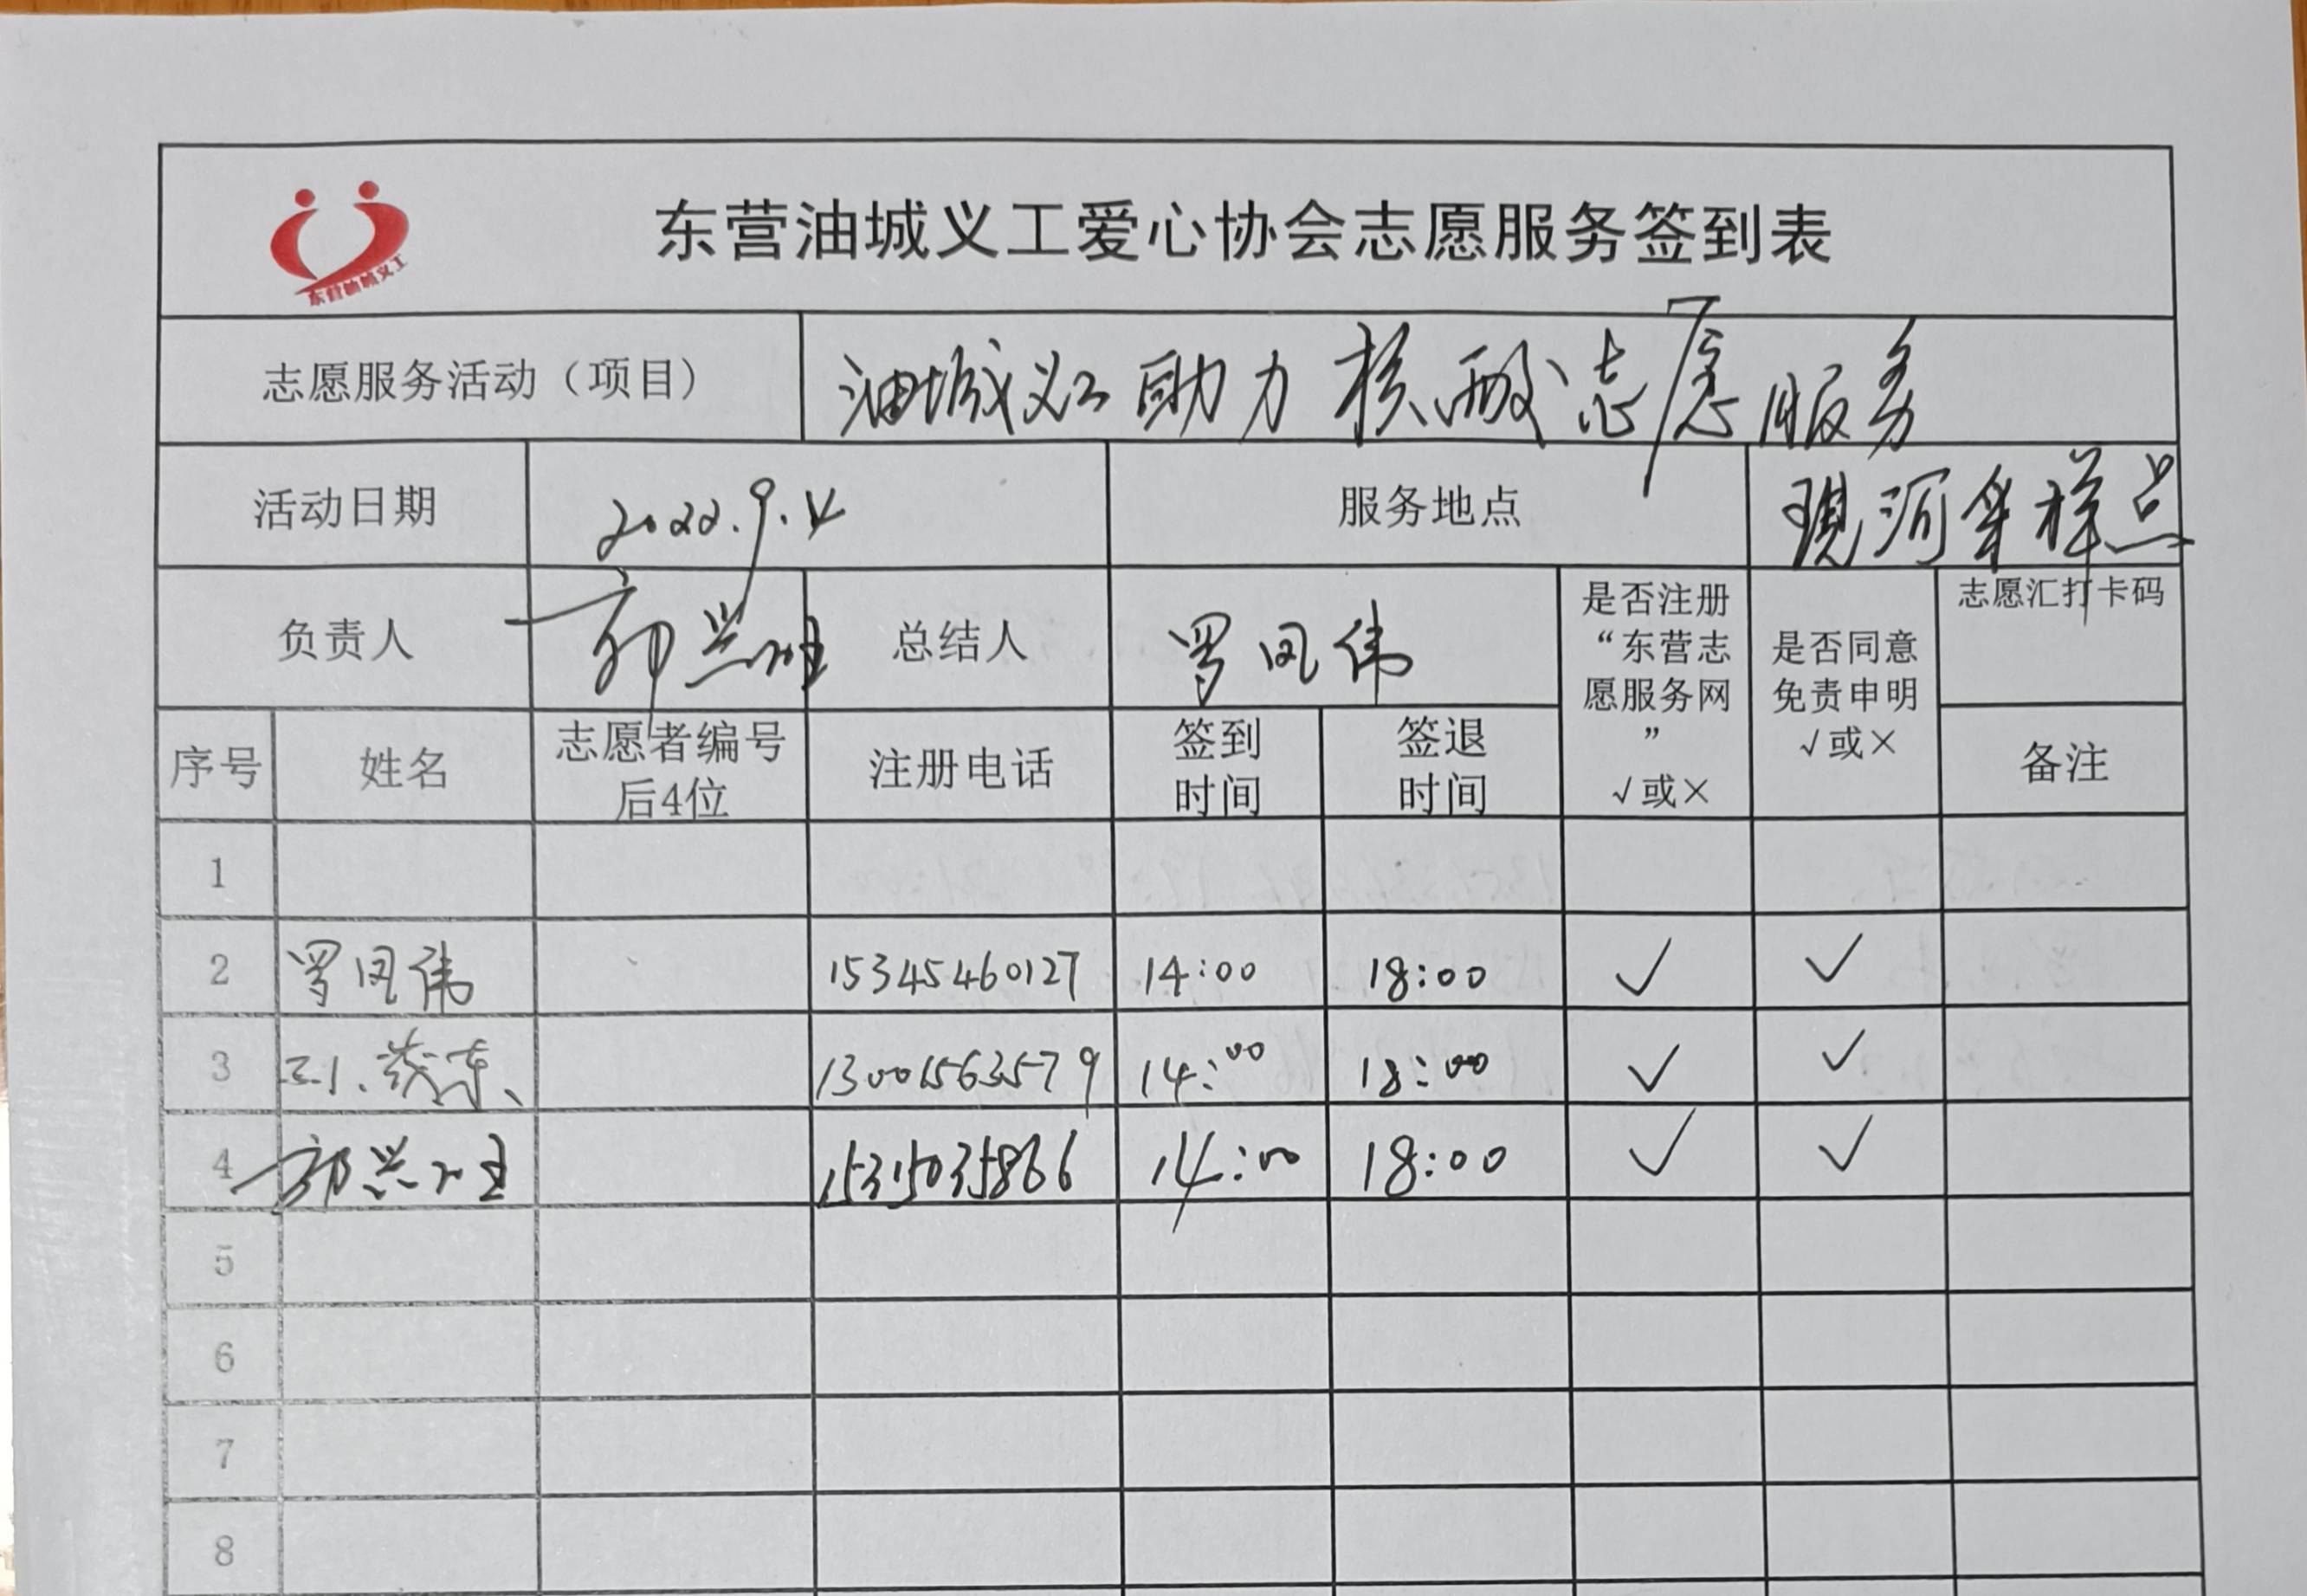 东营油城义工
东营油城义工爱心协会志愿服务签到表
志愿服务活动（项目） 油城义工助力核酸志愿服务
活动日期 2022.9.4 服务地点 现河采样点
负责人 郭兴 总结人 罗凤伟
是否注册
“东营志
愿服务网
”
√或×
是否同意
免责申明
√或×
志愿汇打卡码
序号 姓名 志愿者编号
后4位
注册电话 签到
时间
签退
时间
备注
1
2 罗凤伟 15345460127 14:00 18:00 ✓ ✓
3 13001563579 14:00 18:00 ✓ ✓
4 郭兴 15315035866 14:00 18:00 ✓ ✓
5
6
7
8